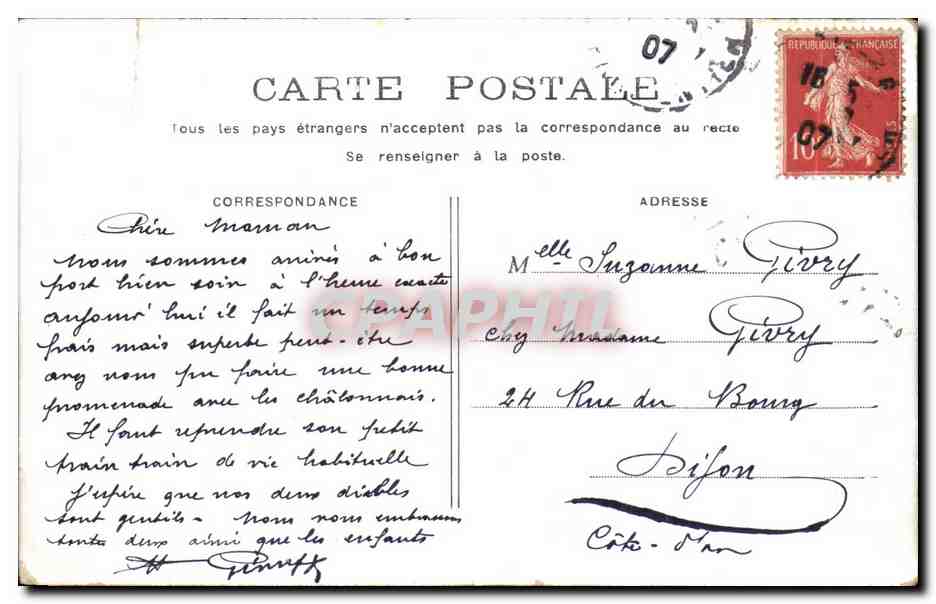 CARTE POSTALE
Tous les pays étrangers n'acceptent pas la correspondance au recto
Se renseigner à la poste.
REPUBLIQUE FRANÇAISE
10
15
5
07
07
CORRESPONDANCE
Chère Maman
Nous sommes arrivés à bon
port hier soir à l'heure exacte
aujourd'hui il fait un temps
frais mais superbe peut-être
avez vous pu faire une bonne
promenade avec les châlonnais.
Il faut reprendre son petit
train train de vie habituelle
J'espère que nos deux diables
sont gentils - Nous vous embrassons
toutes deux ainsi que les enfants
ADRESSE
Melle Suzanne Givry
chez Madame Givry
24 Rue du Bourg
Dijon
Côte-d'or
CPAPHIL